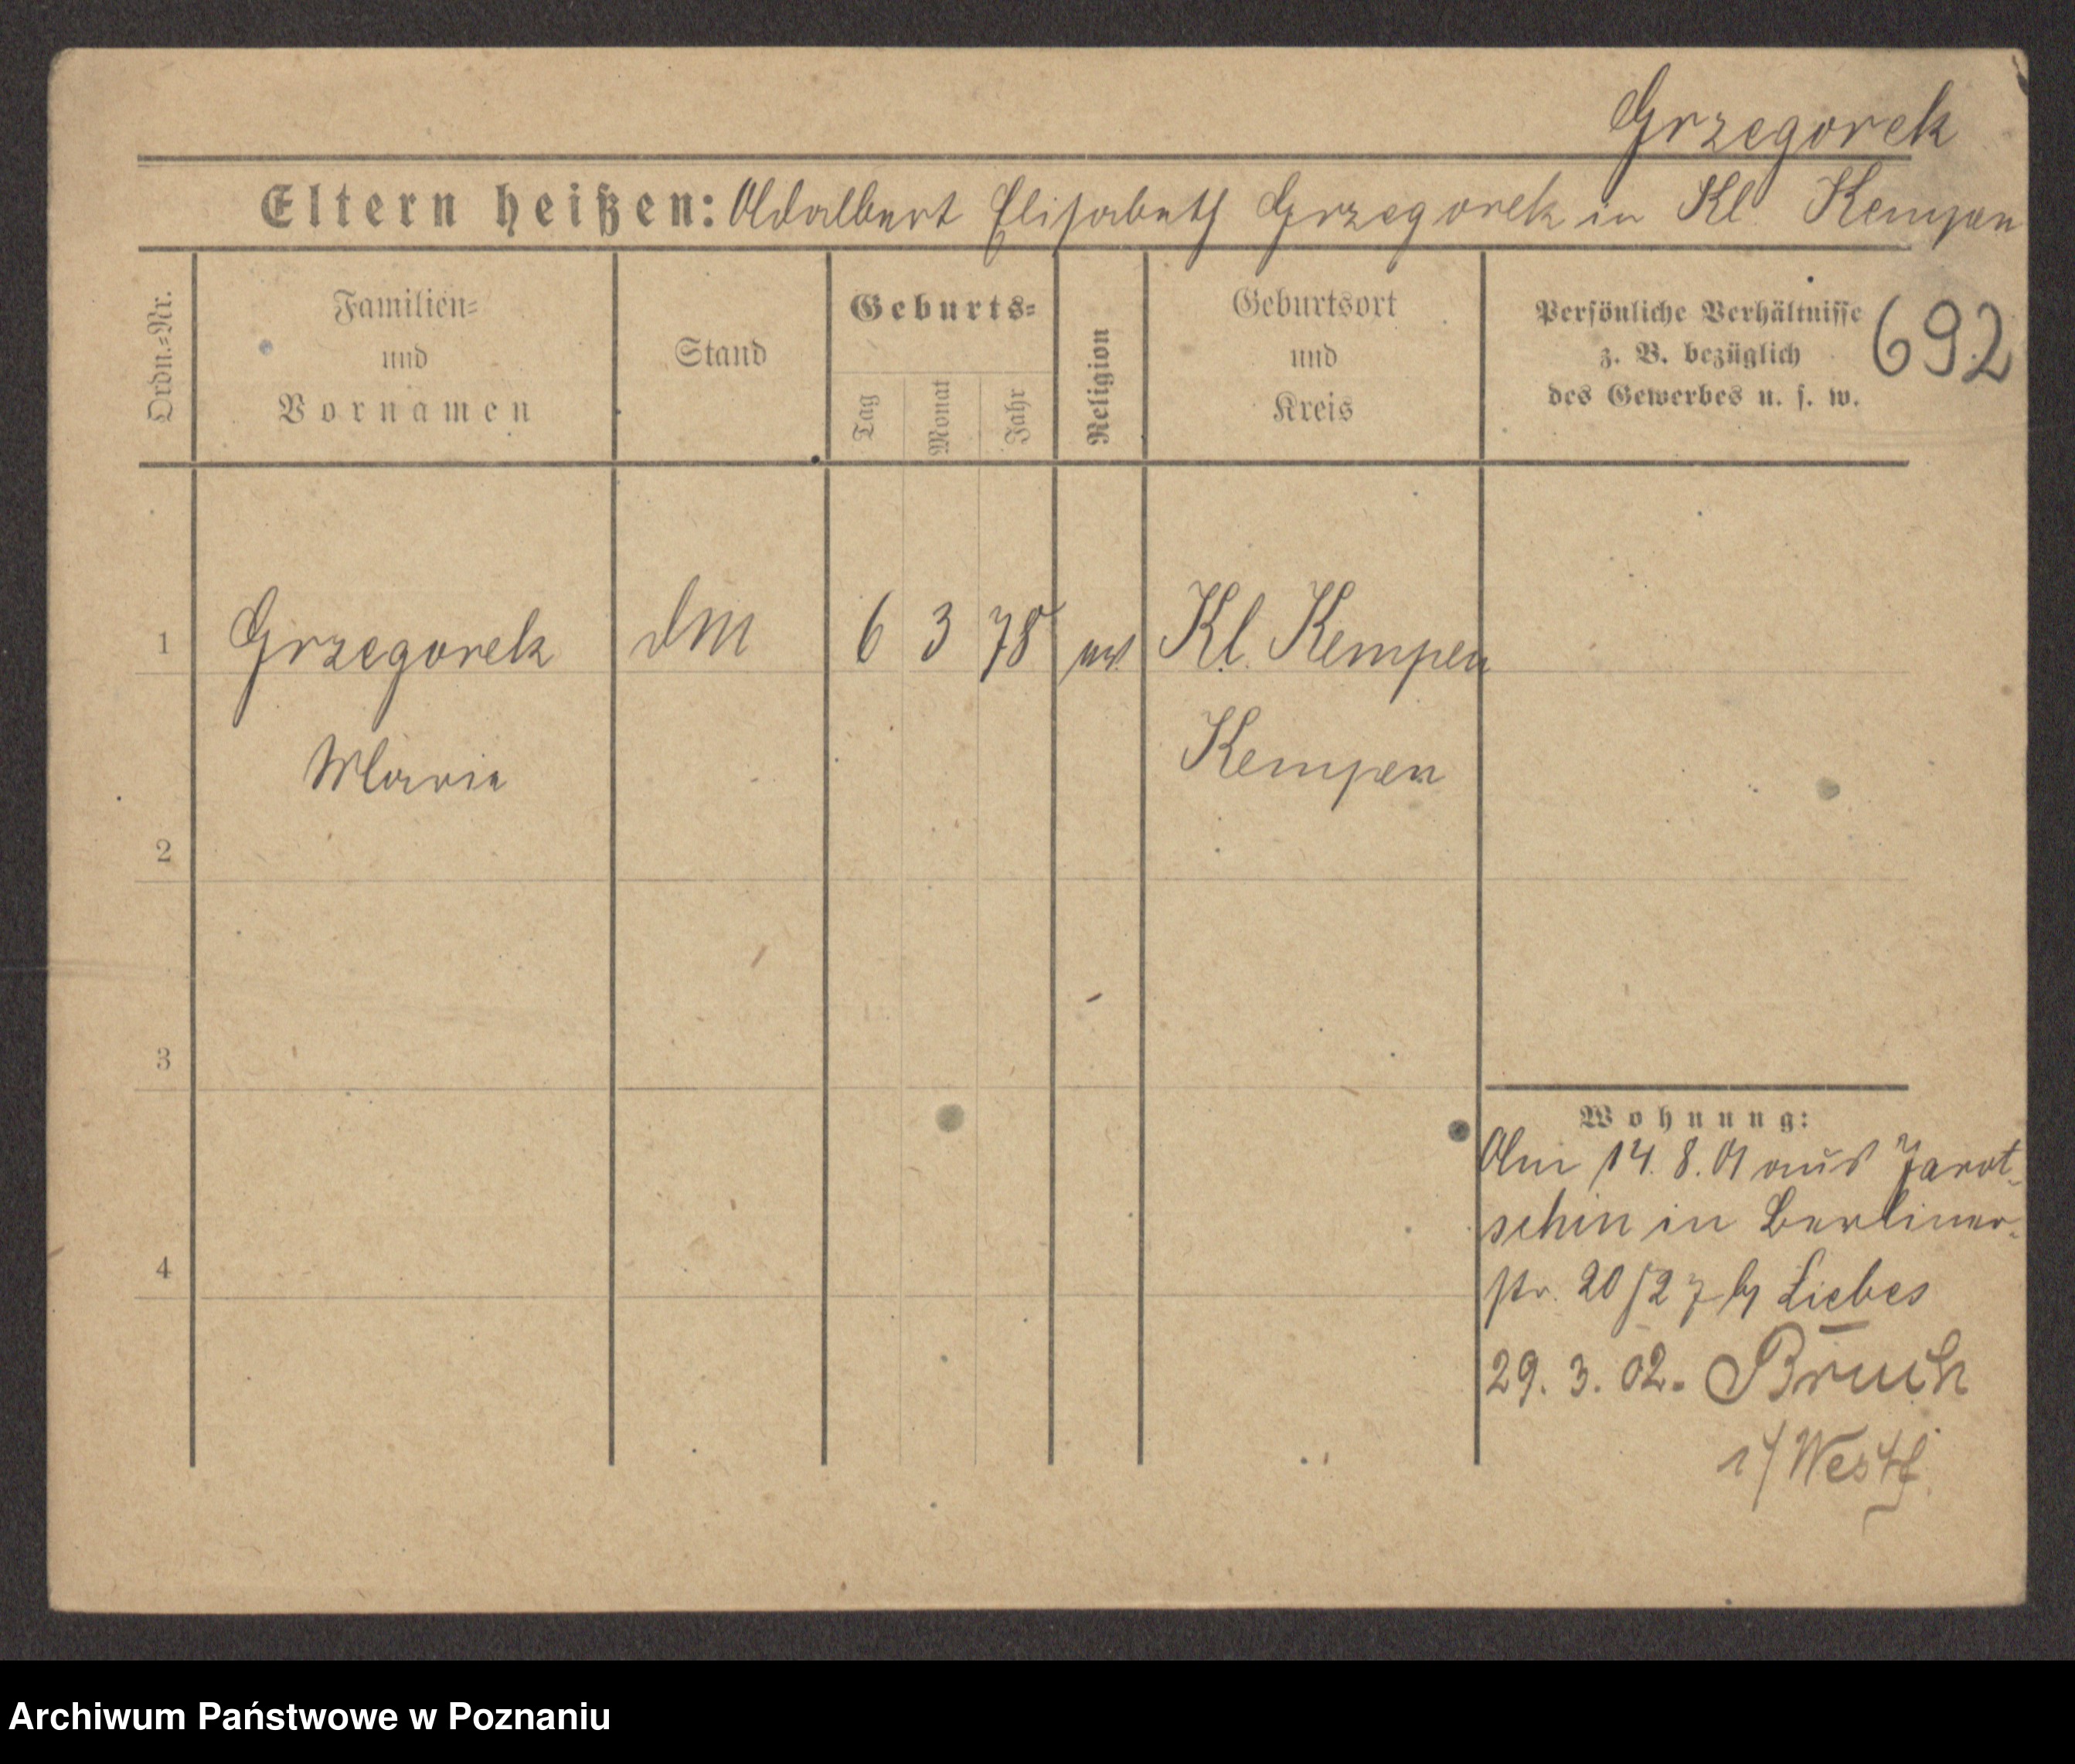 Grzegorek
Eltern heißen: Adalbert Elisabeth Grzegorek in Kl. Kempen
Ordn.-Nr.
Familien-
und
Vornamen
Stand
Geburts-
Tag
Monat
Jahr
Religion
Geburtsort
und
Kreis
Persönliche Verhältnisse
z. B. bezüglich
des Gewerbes u. s. w.
692
1 Grzegorek DM 6 3 78 Kl. Kempen
Marie Kempen
2
3
4
Wohnung:
Am 14. 8. 01 aus Jarot-
schin in Berliner-
str. 20/27 by Liebes
29. 3. 02. Bruch
i/Westf.
Archiwum Państwowe w Poznaniu